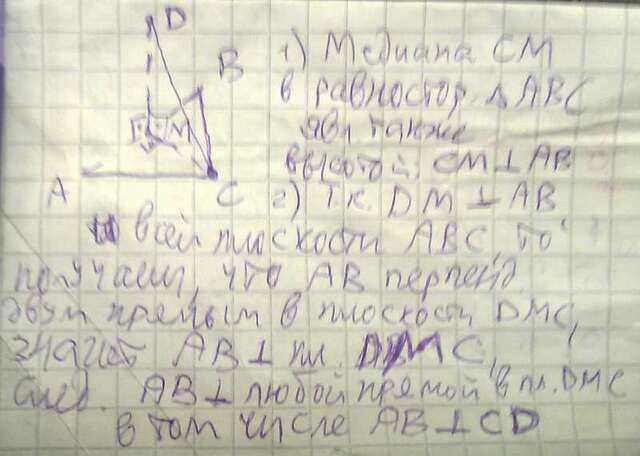 D
B
M
A
C
1) Медиана CM
в равностор. Δ ABC
явл также
высотой. CM ⊥ AB
2) Т.к. DM ⊥ AB
и всей плоскости ABC, то
получаем, что AB перпенд.
двум прямым в плоскости DMC,
значит AB ⊥ пл. DMC,
след. AB ⊥ любой прямой в пл. DMC
в том числе AB ⊥ CD